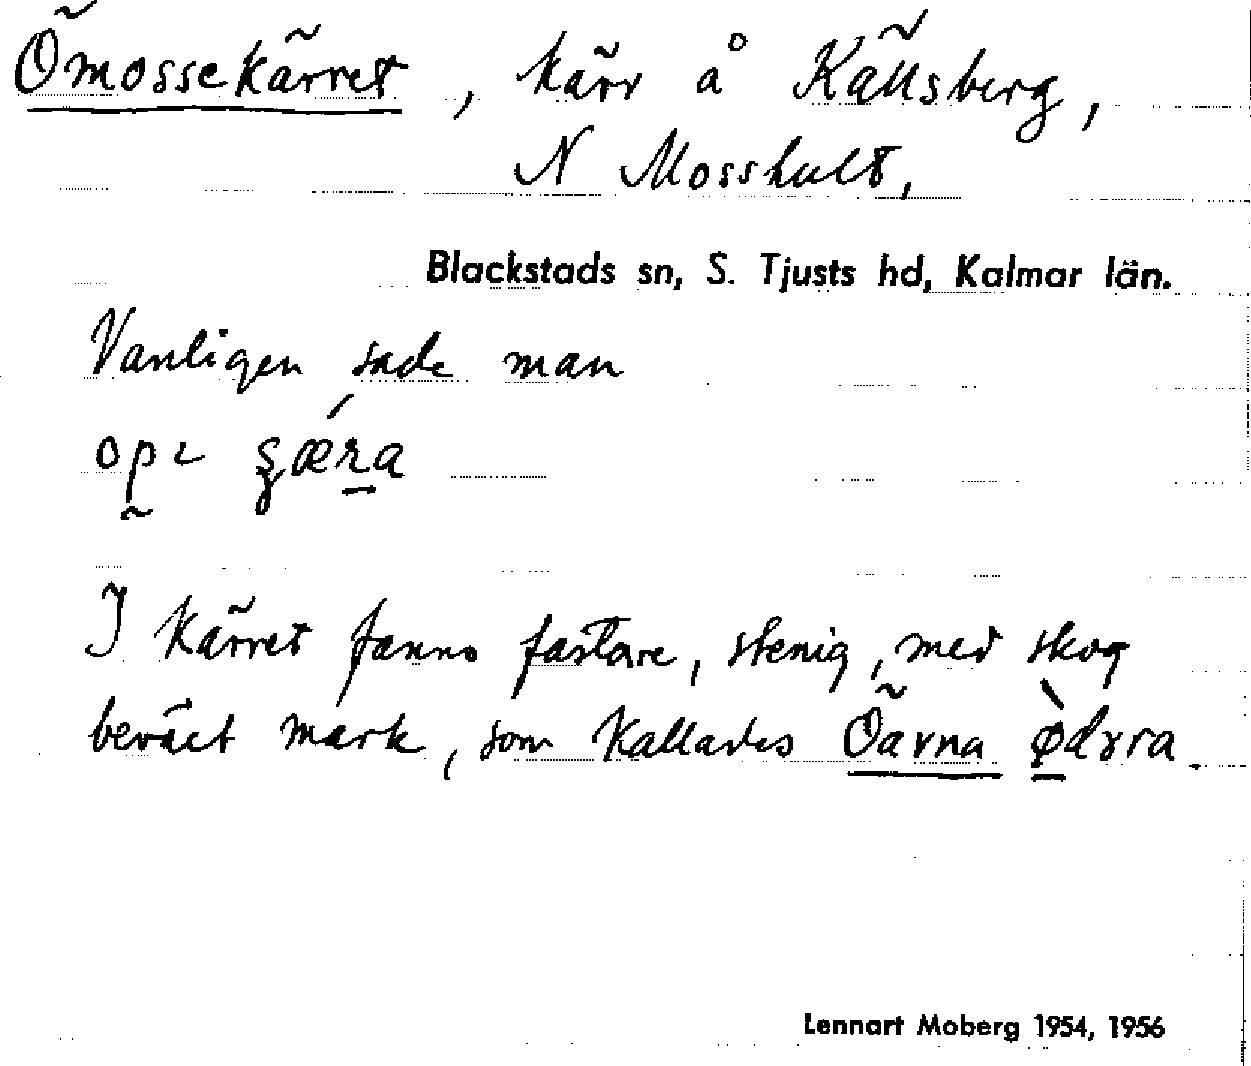 Ömossekärret, kärr å Källsberg,
N Mosshult,
Blackstads sn, S. Tjusts hd, Kalmar län.
Vanligen sade man
I kärret fanns fastare, stenig, med skog
beväxt mark, som kallades Öarna
Lennart Moberg 1954, 1956